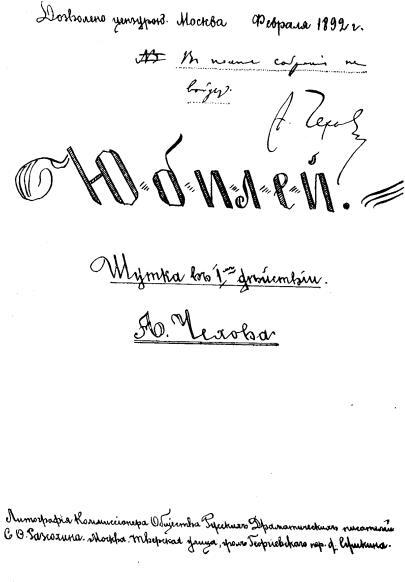 Дозволено цензурою. Москва Февраля 1892 г.
В полное собранiе не
войдет.
А. Чехов
Ю-б-и-л-е-й.
Шутка въ 1-мъ дѣйствіи.
А. Чехова
Литографія Коммиссіонера Общества Русскихъ Драматическихъ писателей
С. Ѳ. Разсохина. Москва. Тверская улица, уголъ Георгіевскаго пер. д. Сушкина.